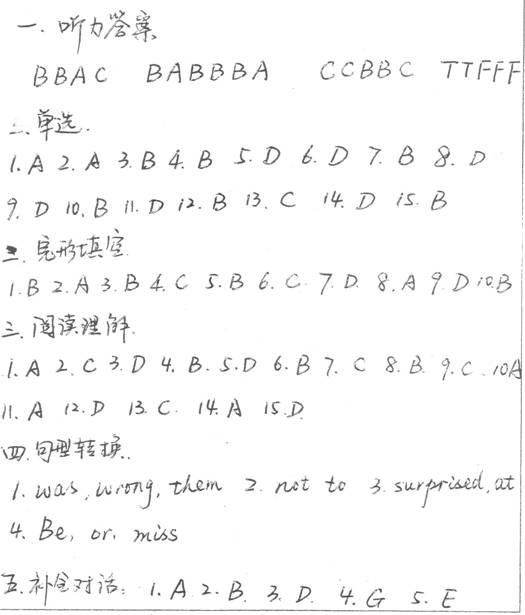 一. 听力答案
BBAC BABBBA CCBBC TTFFF
二、单选.
1. A 2. A 3. B 4. B 5. D 6. D 7. B 8. D
9. D 10. B 11. D 12. B 13. C 14. D 15. B
三. 完形填空
1. B 2. A 3. B 4. C 5. B 6. C 7. D. 8. A 9. D 10. B
三. 阅读理解.
1. A 2. C 3. D 4. B. 5. D 6. B 7. C 8. B. 9. C. 10A
11. A 12. D 13. C. 14. A 15. D.
四. 句型转换.
1. was, wrong, them 2. not to 3. surprised, at
4. Be, or, miss
五. 补全对话: 1. A 2. B. 3. D. 4. G 5. E